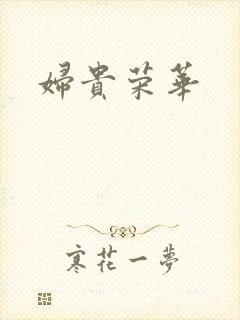 婦貴荣華
寒花一夢